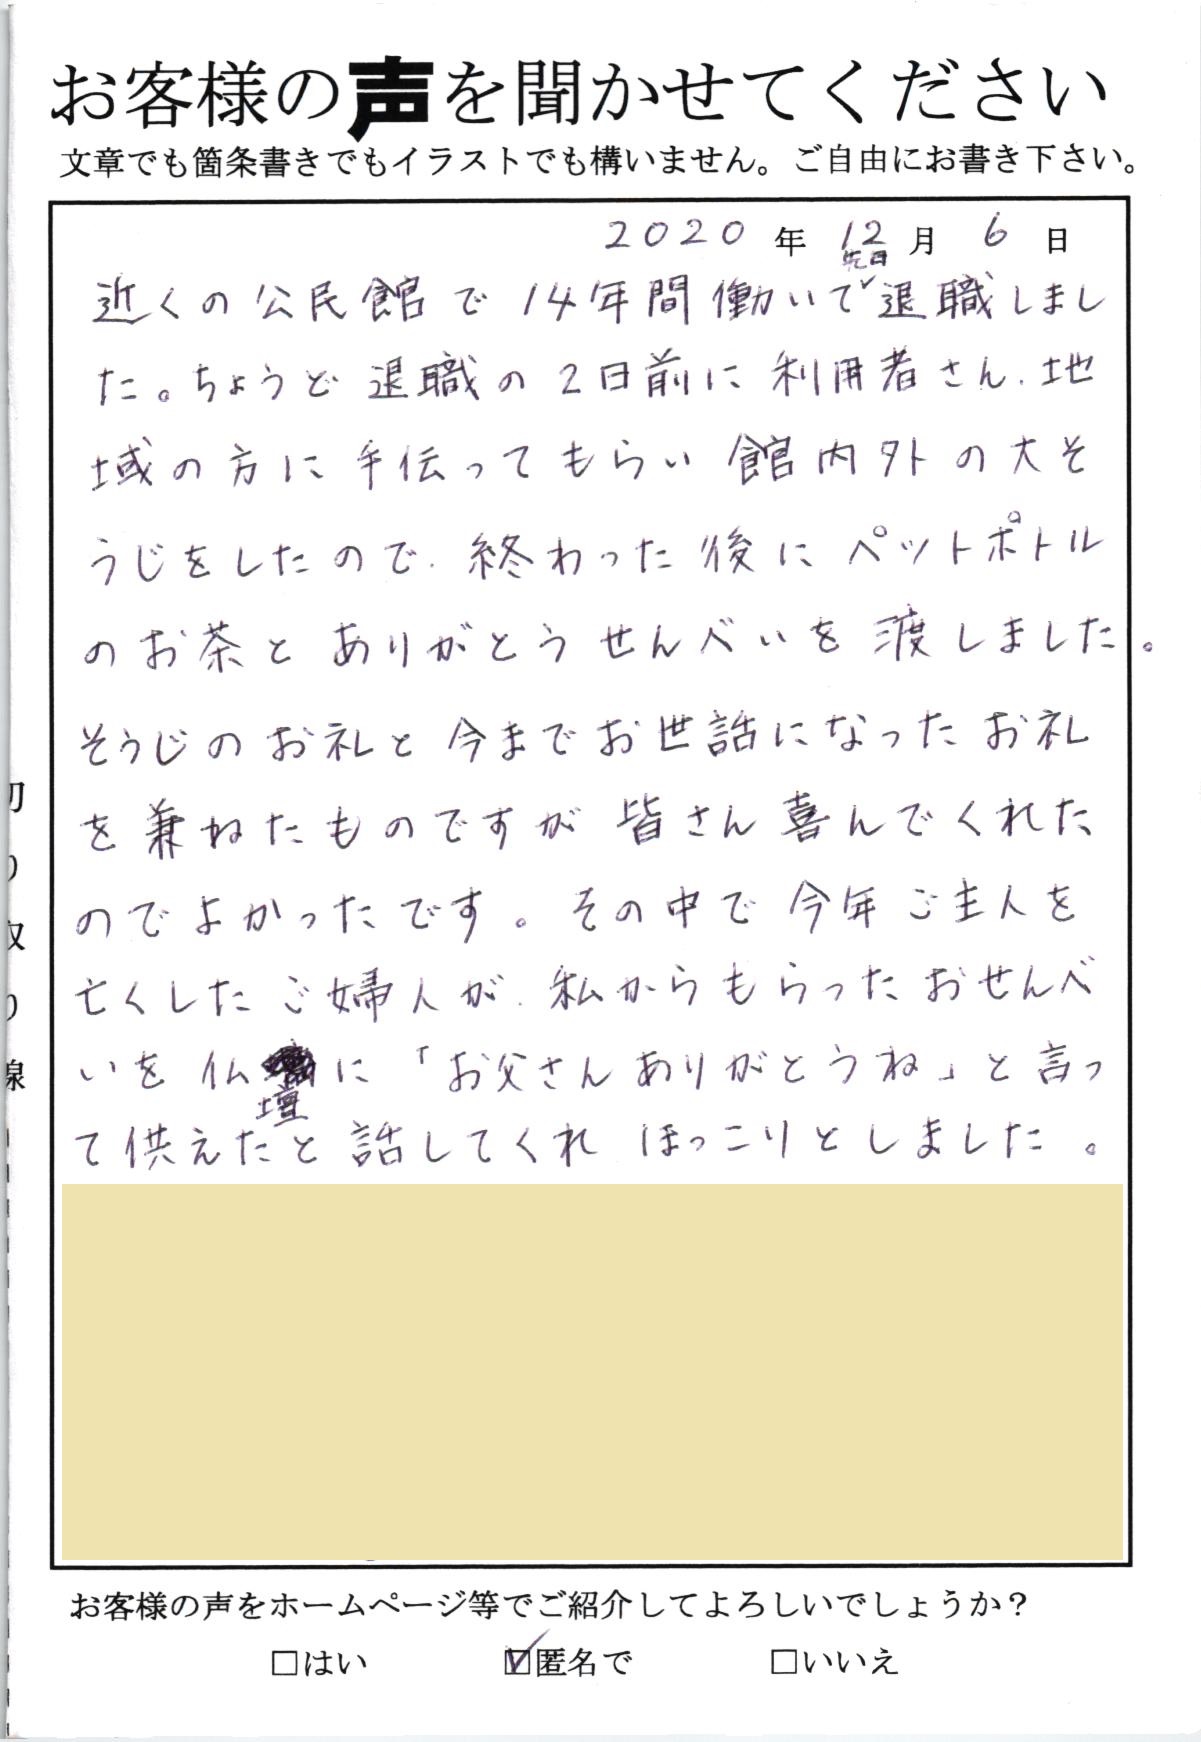 お客様の声を聞かせてください
文章でも箇条書きでもイラストでも構いません。ご自由にお書き下さい。
2020年12月6日
先日
近くの公民館で14年間働いて退職しまし
た。ちょうど退職の2日前に利用者さん、地
域の方に手伝ってもらい館内外の大そ
うじをしたので、終わった後にペットポトル
のお茶とありがとうせんべいを渡しました。
そうじのお礼と今までお世話になったお礼
を兼ねたものですが皆さん喜んでくれた
のでよかったです。その中で今年ご主人を
亡くしたご婦人が、私からもらったおせんべ
いを仏に「お父さんありがとうね」と言っ
壇
て供えたと話してくれほっこりとしました。
切り取り線
お客様の声をホームページ等でご紹介してよろしいでしょうか？
□はい ☑匿名で □いいえ